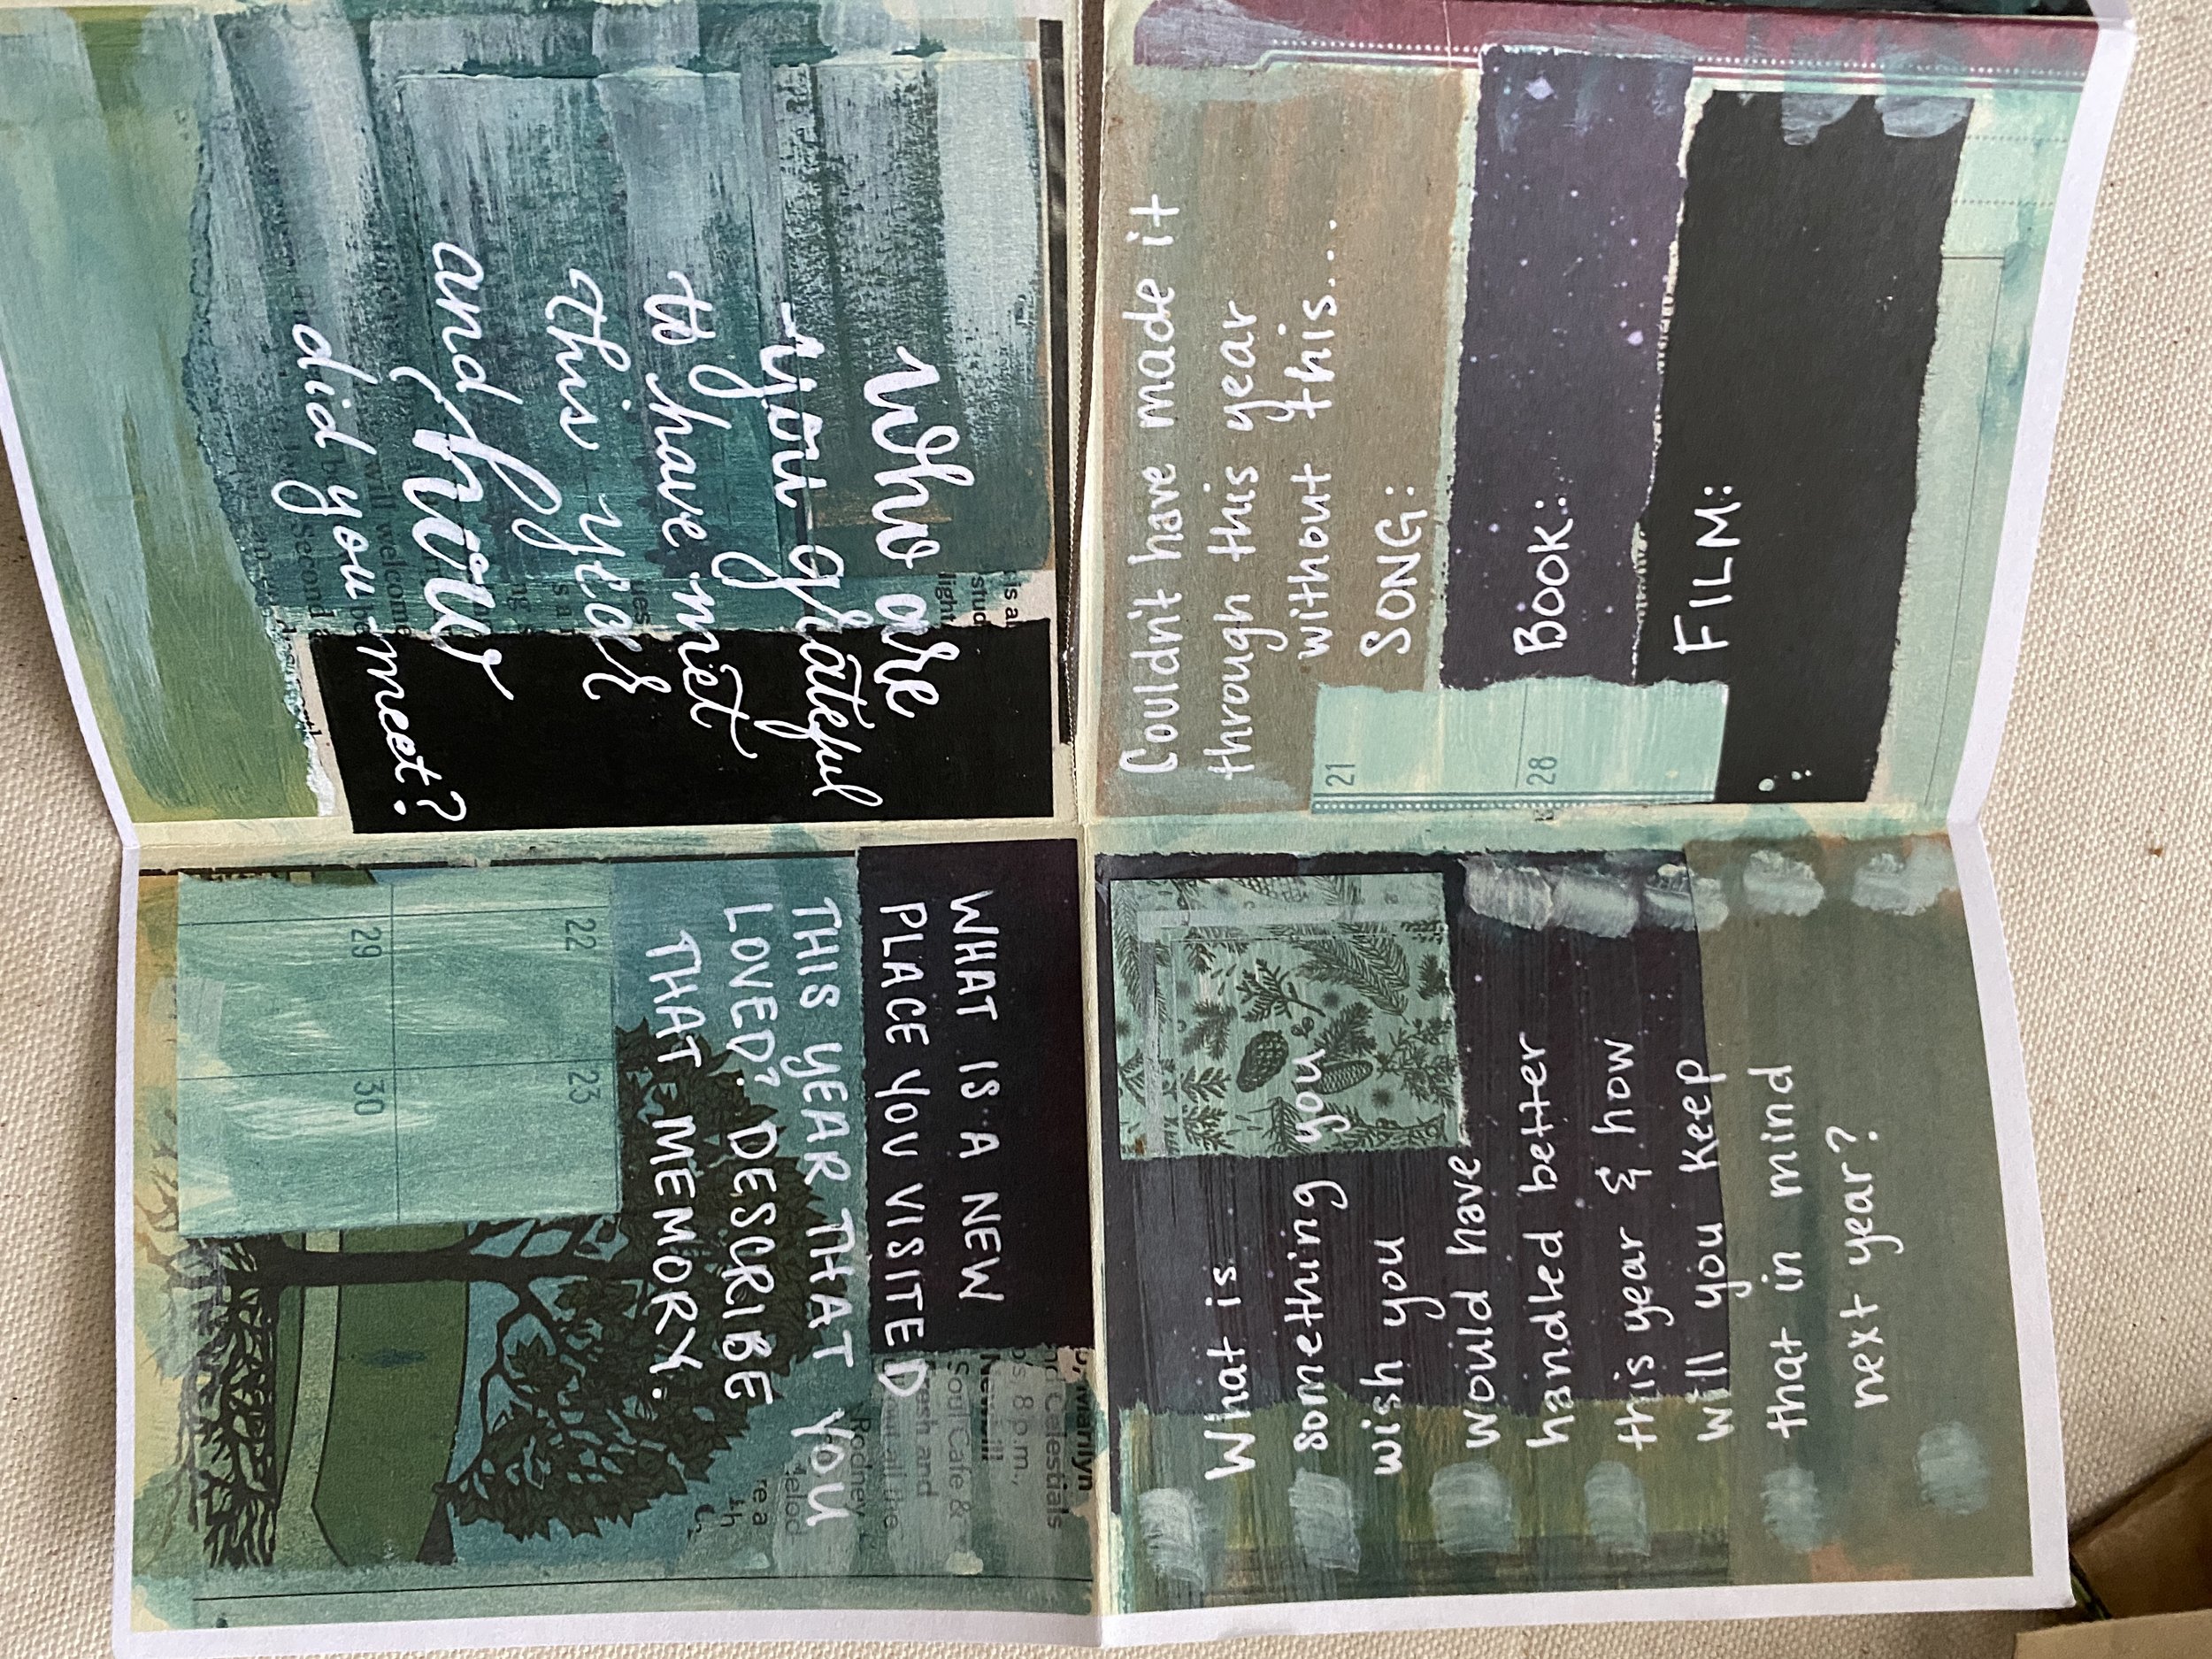 Who are
you grateful
to have met
this year
and how
did you meet?
Couldn't have made it
through this year
without this...
SONG:
BOOK:
FILM:
21
28
WHAT IS A NEW
PLACE YOU VISITED
THIS YEAR THAT YOU
LOVED? DESCRIBE
THAT MEMORY.
22
23
29
30
Marilyn
Celestials
8 p.m.,
Newhill
Soul Cafe &
Rodney
What is
something you
wish you
would have
handled better
this year & how
will you keep
that in mind
next year?